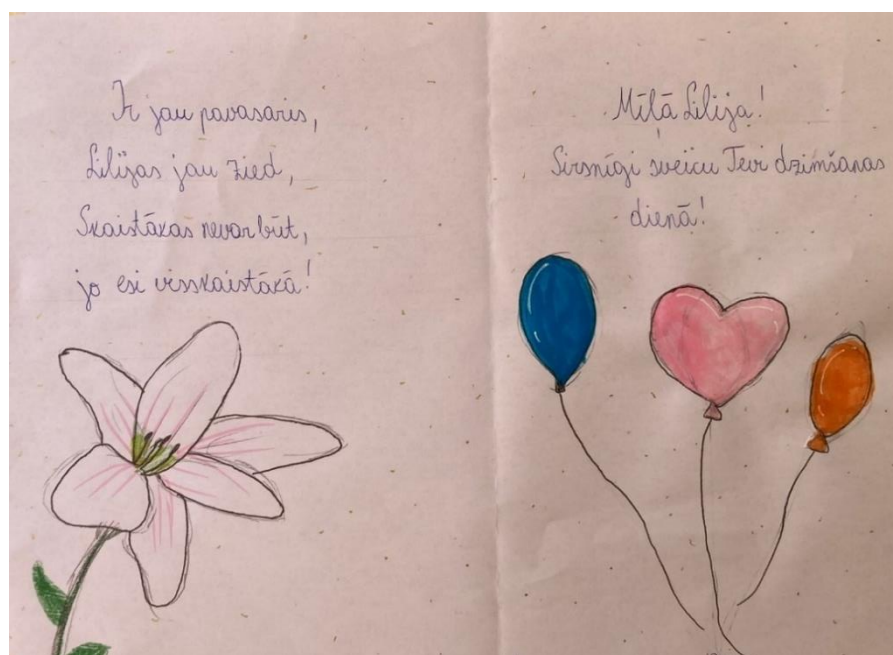 Ir jau pavasaris,
Lilijas jau zied,
Skaistākas nevar būt,
jo esi visskaistākā!
Mīļā Lilija!
Sirsnīgi sveicu Tevi dzimšanas
dienā!